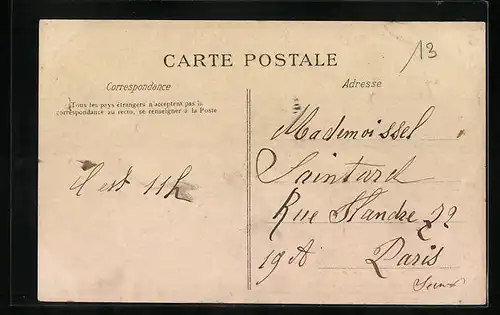 13
CARTE POSTALE
Correspondance
Adresse
Tous les pays étrangers n'acceptent pas la
correspondance au recto, se renseigner à la Poste
Il est 11h
Mademoissel
Saintard
Rue Flandre 72
19 A Paris
Seine